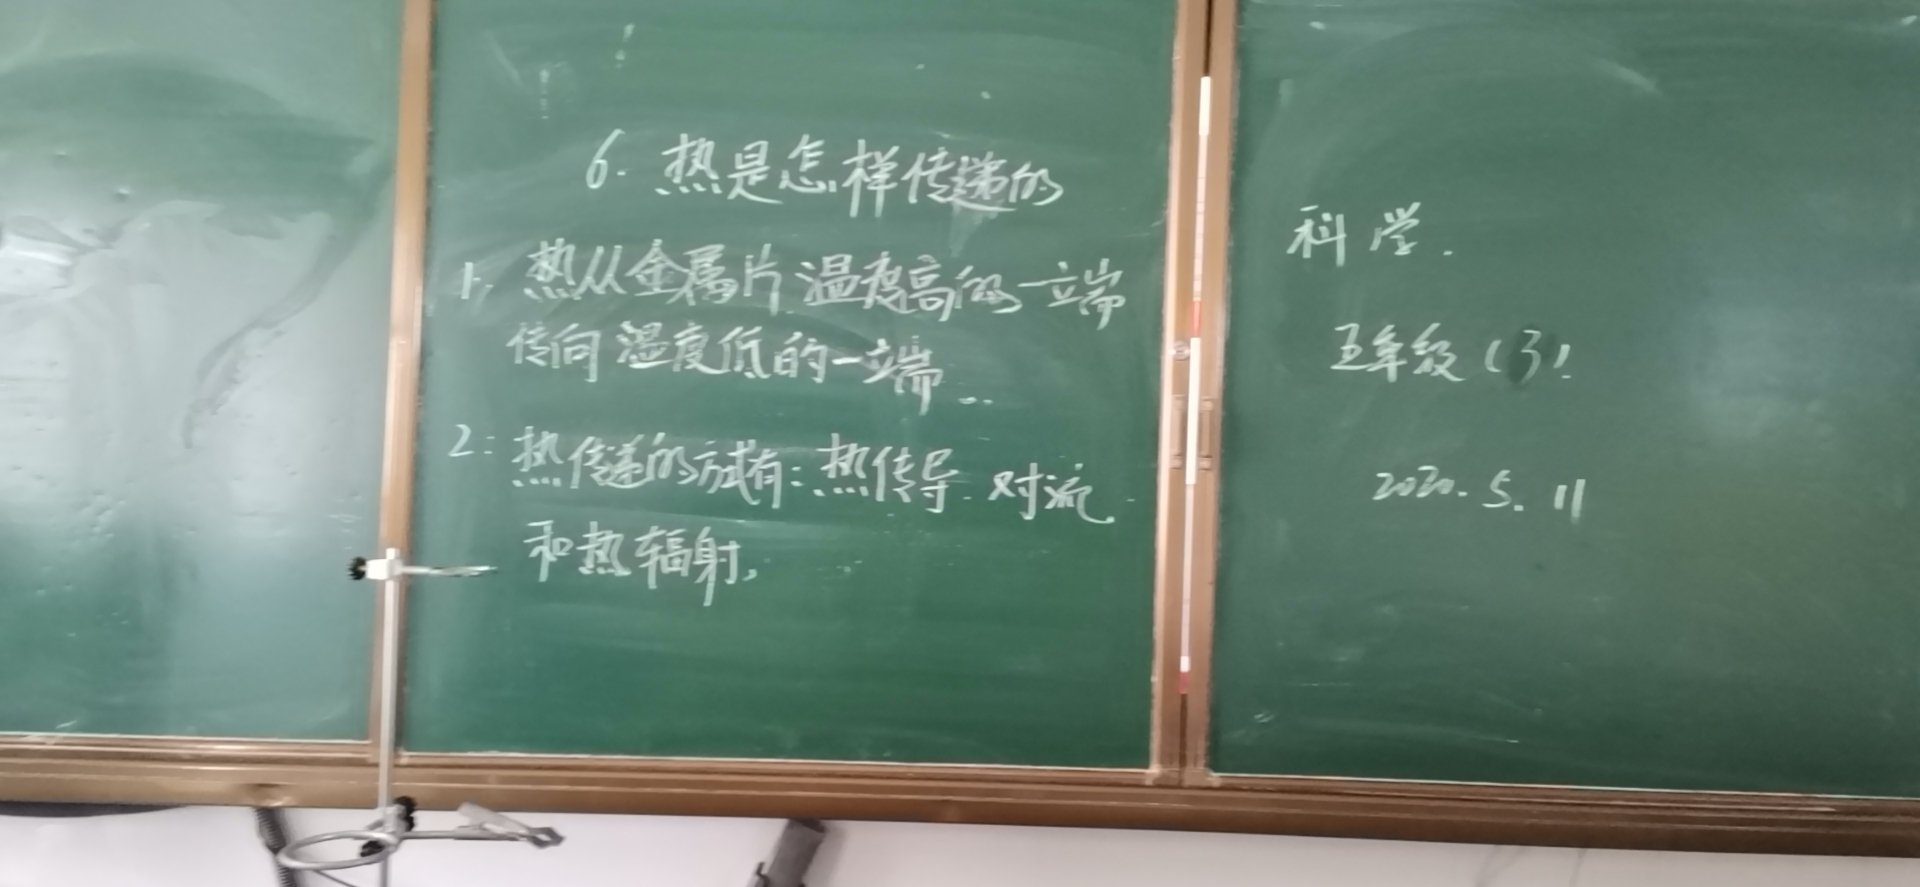 6. 热是怎样传递的
1. 热从金属片温度高的一端
传向温度低的一端
2: 热传递的方式有: 热传导. 对流
和热辐射.
科学.
五年级(3)
2020. 5. 11